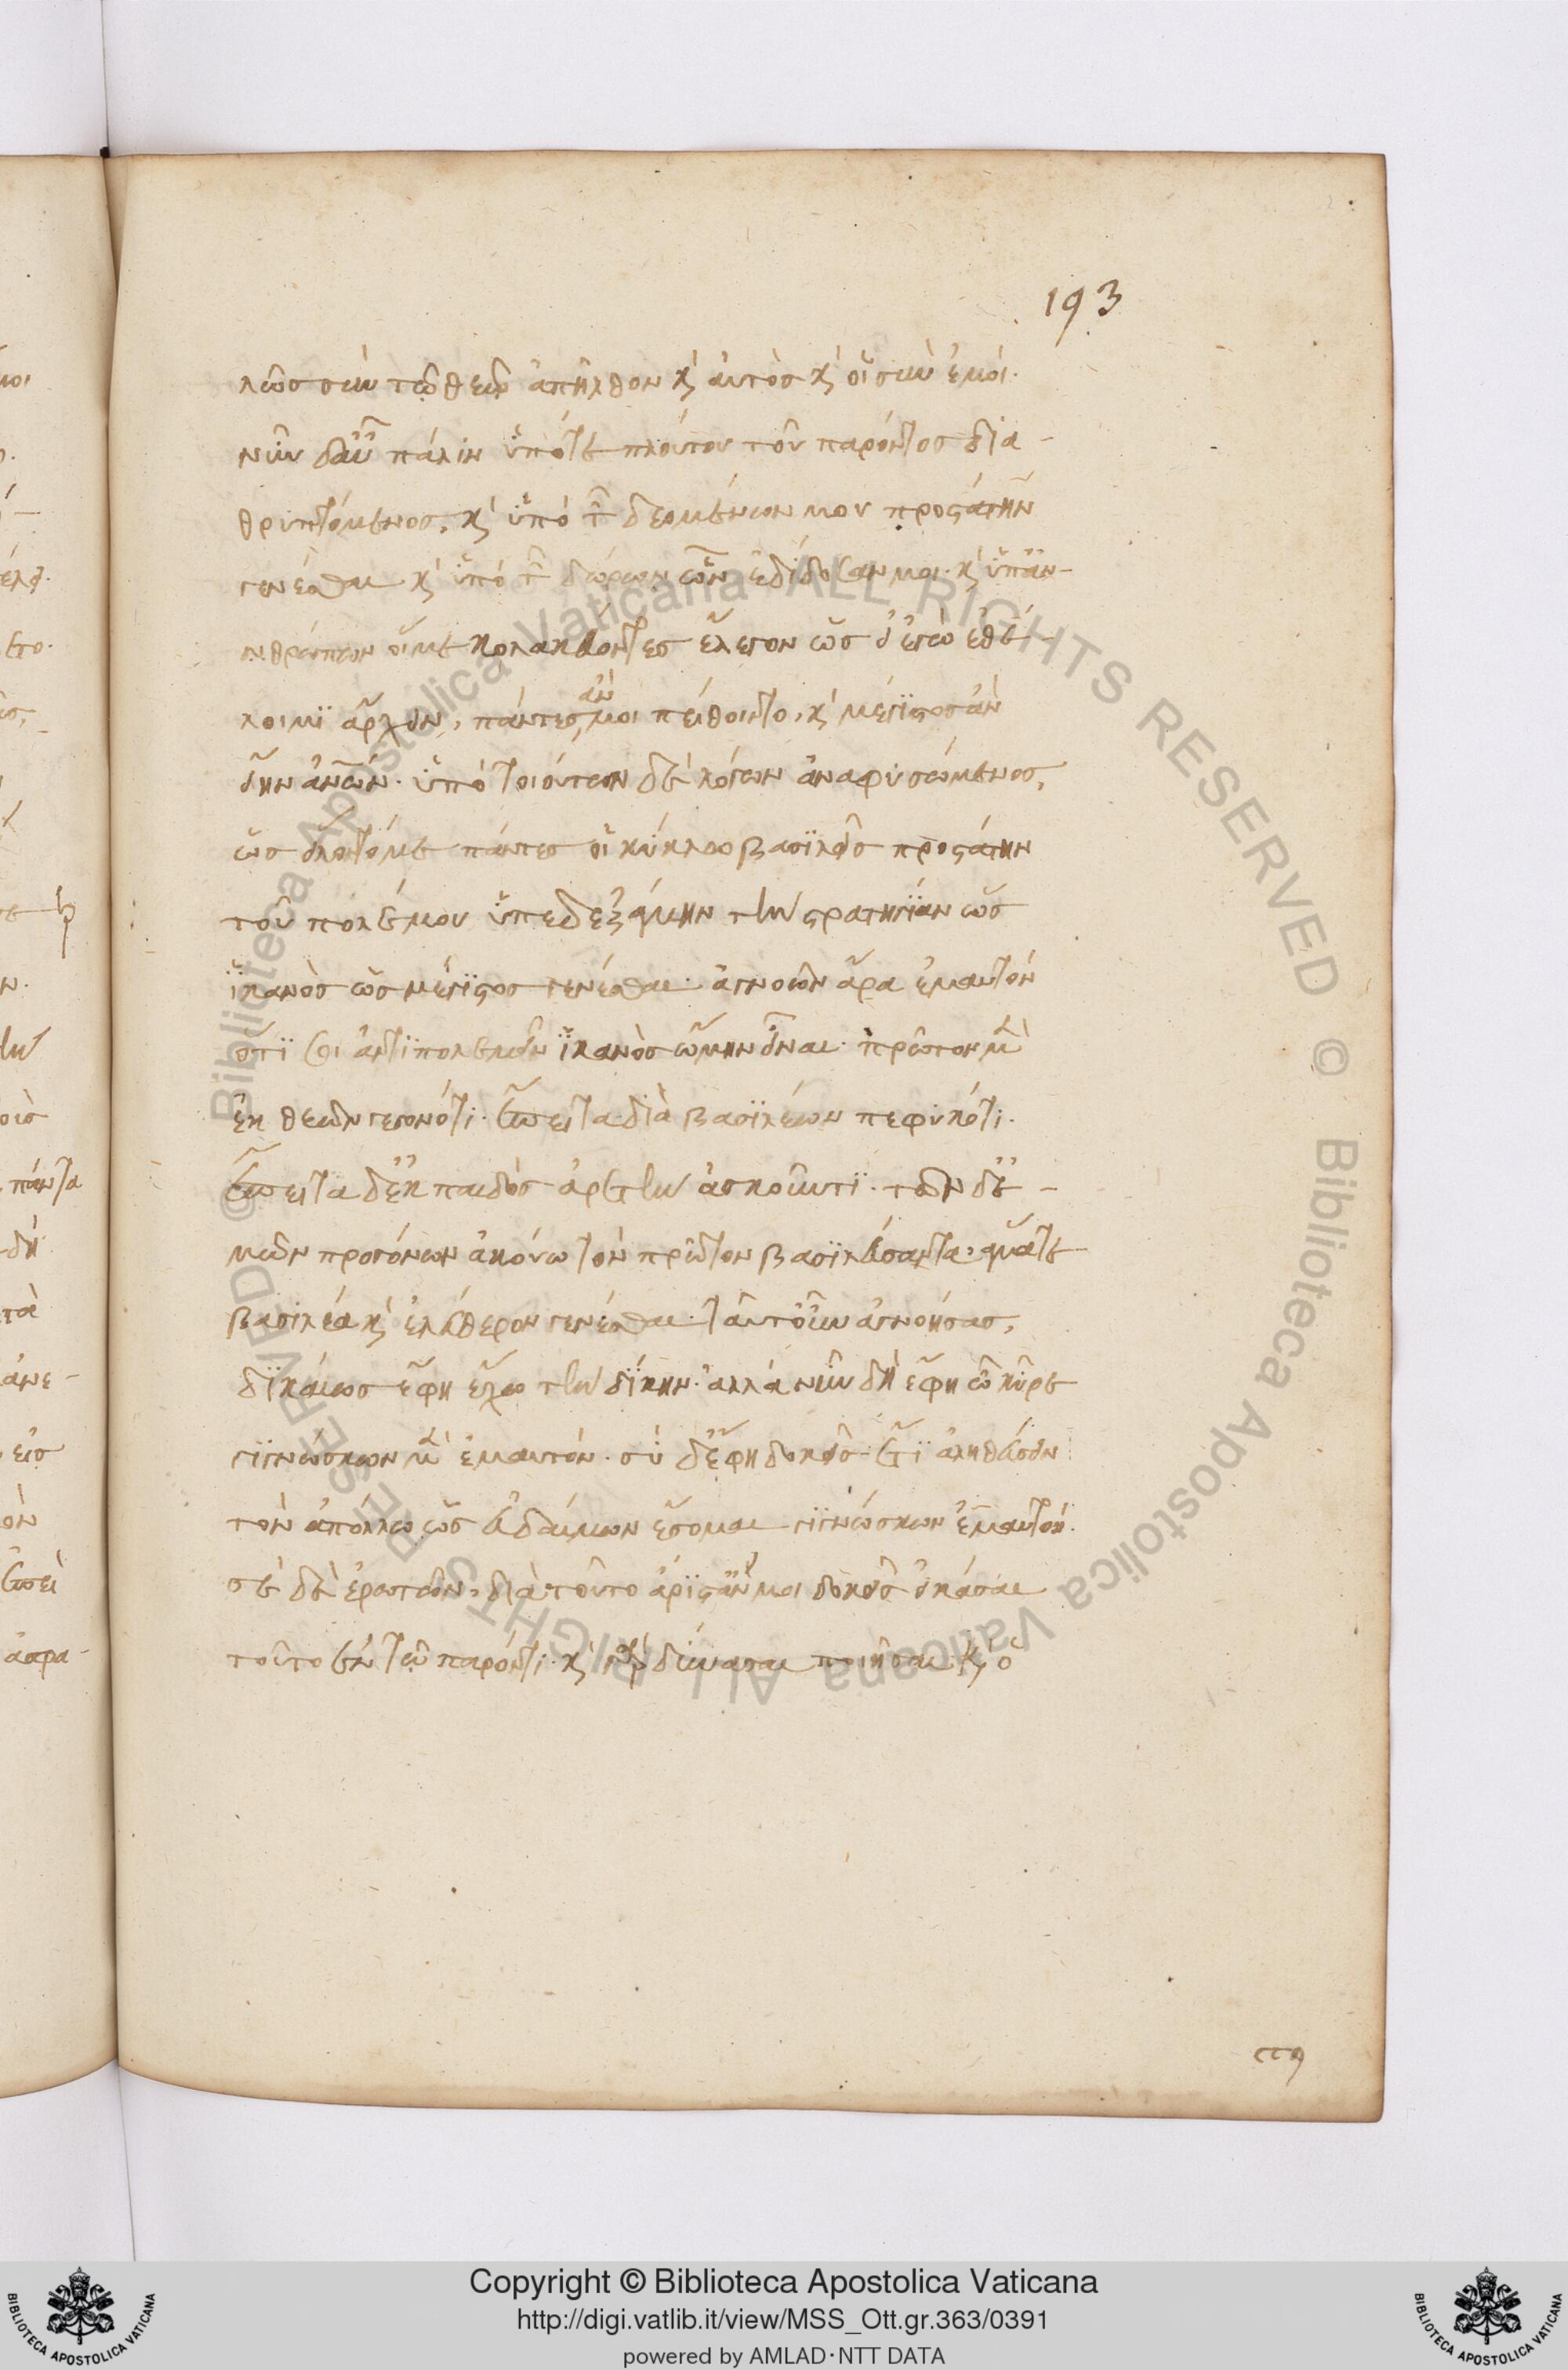 193
λῶς σὺν τῷ θεῷ ἀπῆλθον κ᾽ αὐτὸς κ᾽ οἱ σὺν ἐμοί.
νῦν δ᾽ αὖ πάλιν ὑπό τε πλούτου τοῦ παρόντος δια-
θρυπτόμενος, κ᾽ ὑπὸ τ῀ δεομένων μου προστάτην
γενέσθαι κ᾽ ὑπὸ τ῀ δώρων ὧν ἐδίδοσαν μοι. κ᾽ ὑπ᾽ ἀν-
νθρώπων οἵ με κολακεύοντες ἔλεγον ὡς εἰ ἐγὼ ἐθέ-
λοιμι ἄρχειν, πάντες ἄν μοι πείθοιντο, κ᾽ μέγιστος ἂν
εἴην ἀνῶν. ὑπὸ τοιούτων δὲ λόγων ἀναφυσώμενος,
ὡς εἵλοντό με πάντες οἱ κύκλῳ βασιλεῖς προστάτην
τοῦ πολέμου ὑπεδεξάμην τὴν στρατηγίαν ὡς
ἱκανὸς ὡς μέγιστος γενέσθαι. ἀγνοῶν ἄρα ἐμαυτόν
ὅτι σοι ἀντιπολεμεῖν ἱκανὸς ᾤμην εἶναι. πρῶτον μὲ
ἐκ θεῶν γεγονότι. ἔπειτα διὰ βασιλέων πεφυκότι.
ἔπειτα δ᾽ ἐκ παιδὸς ἀρετὴν ἀσκοῦντι. τῶν δ᾽ ἐ-
μῶν προγόνων ἀκούω τὸν πρῶτον βασιλεύσαντα, ἅμα τε
βασιλέα κ᾽ ἐλεύθερον γενέσθαι. ταῦτ᾽ οὖν ἀγνοήσας,
δικαίως ἔφη ἔχω τὴν δίκην. ἀλλὰ νῦν δὴ ἔφη ὦ κῦρε
γιγνώσκων μὲ ἐμαυτόν. σὺ δ᾽ ἔφη δοκεῖς ἔτι ἀληθεύσειν
τὸν ἀπόλλω ὡς εὐδαίμων ἔσομαι γιγνώσκων ἐμαυτόν.
σὲ δὲ ἐρωτῶν, διὰ τοῦτο ἄριστ᾽ ἄν μοι δοκεῖς εἰκάσαι
τοῦτο ἐν τῷ παρόντι. κ᾽ γὰρ δύνασαι ποιῆσαι. κ᾽ ὁ